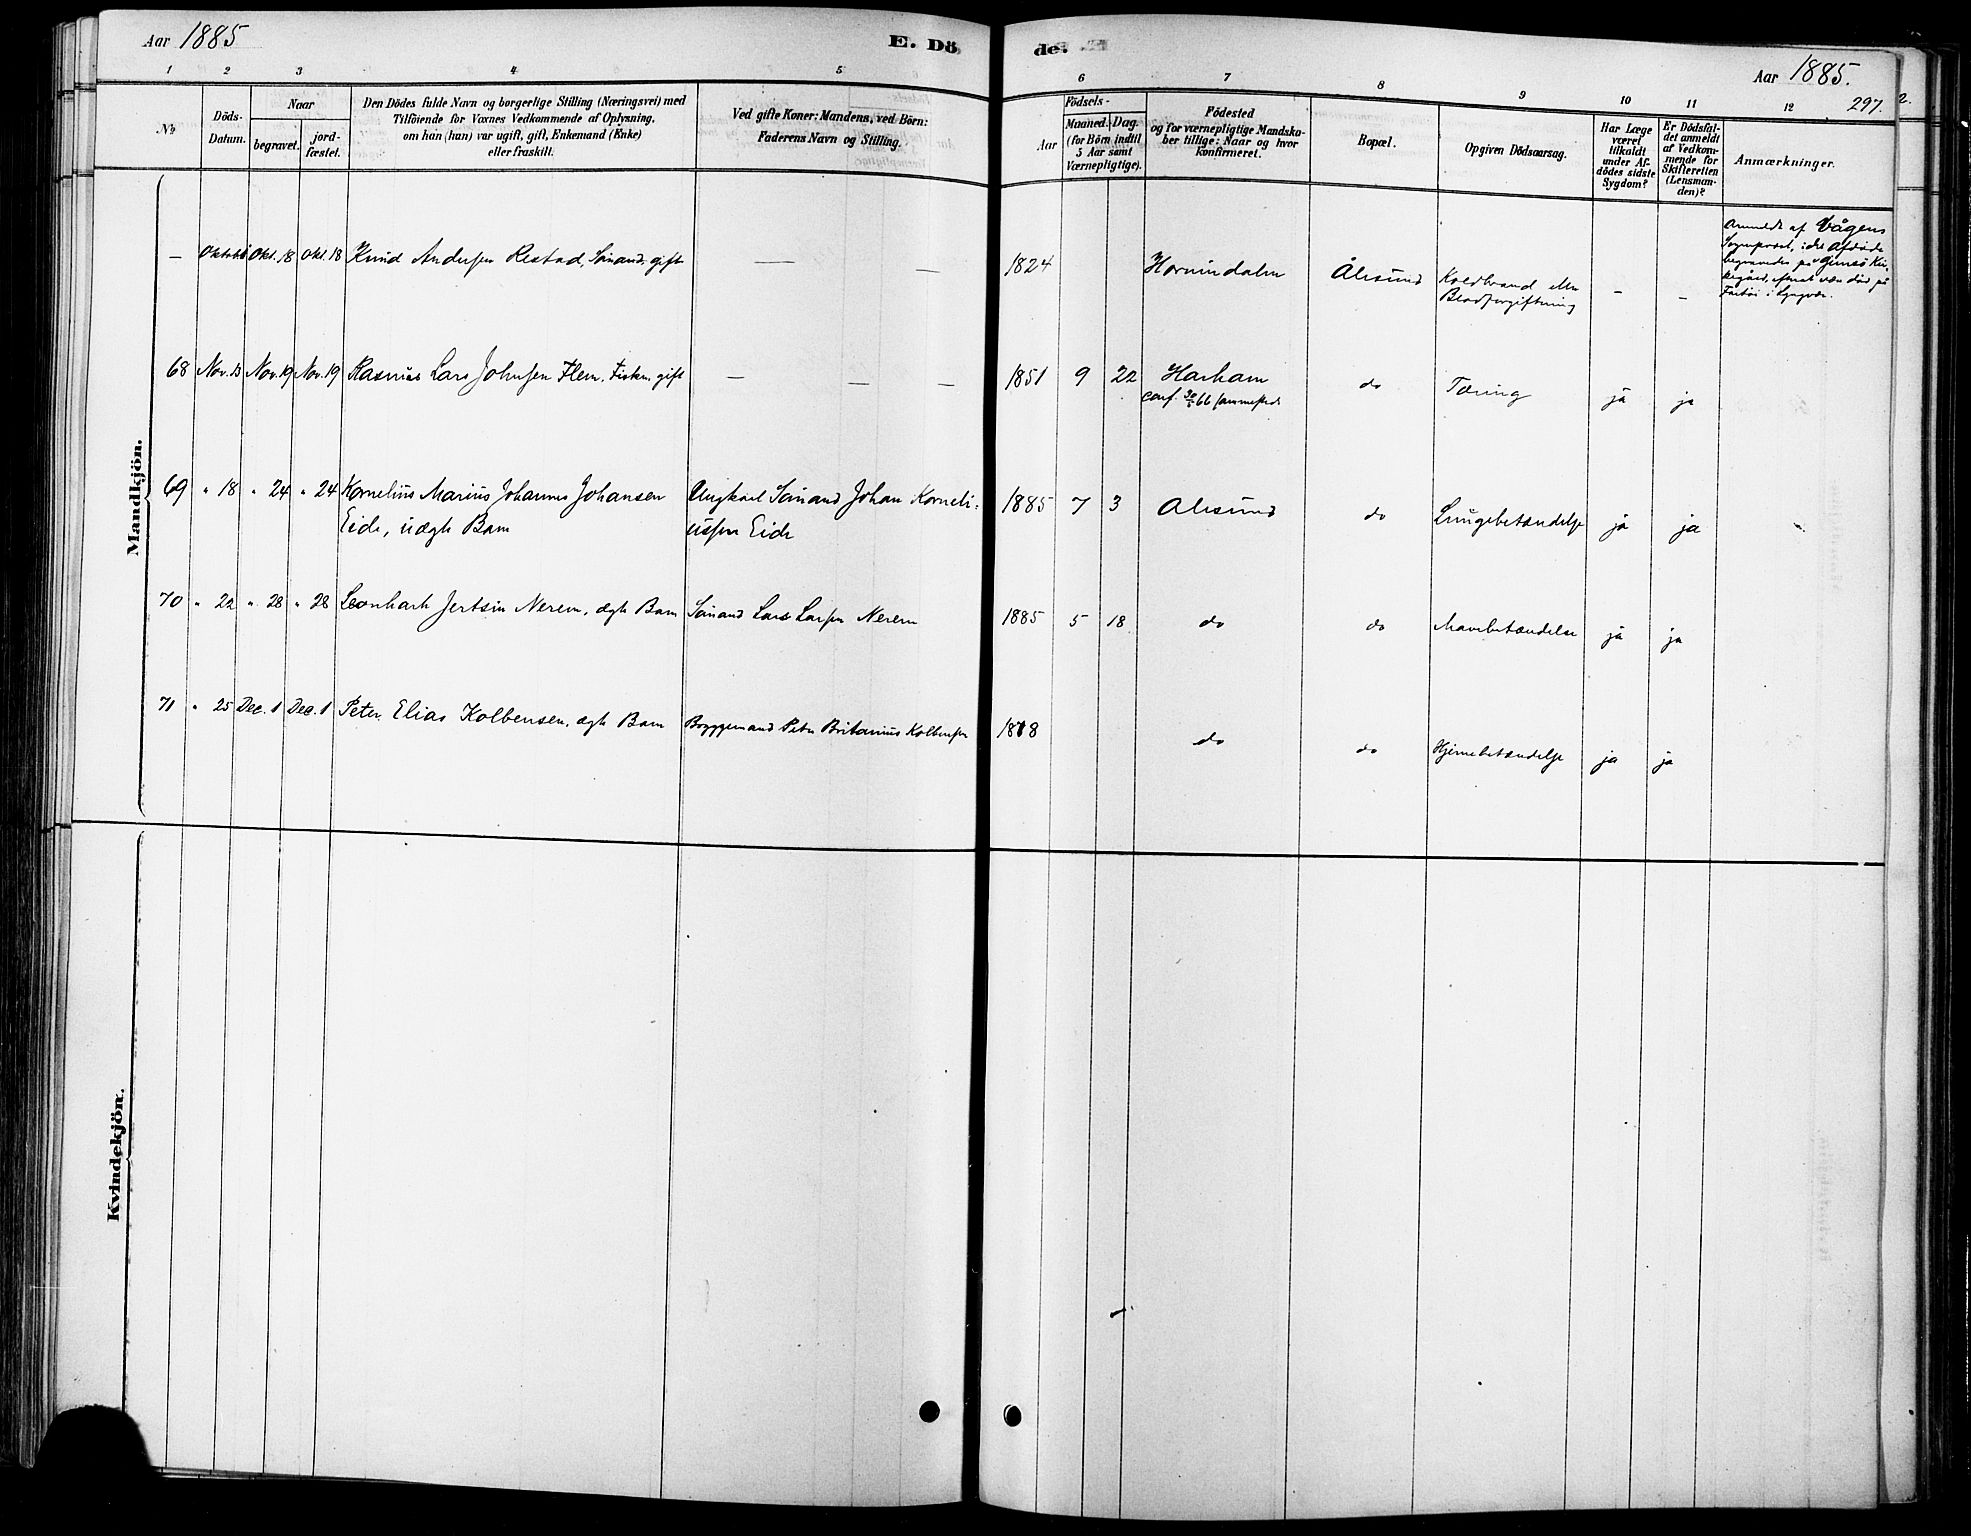 Aar 1885
E. Dö
de.
Aar 1885.
297.
2.
1 2 3 4 5
6 7 8 9 10 11 12
No
Döds-
Datum.
Naar
begravet.
jord-
fæstet.
Den Dödes fulde Navn og borgerlige Stilling (Næringsvei) med
Tilföiende for Voxnes Vedkommende af Oplysning,
om han (hun) var ugift, gift, Enkemand (Enke)
eller fraskilt.
Ved gifte Koner: Mandens, ved Börn:
Faderens Navn og Stilling.
Födsels-
Aar
Maaned. Dag.
(for Börn indtil
5 Aar samt
Værnepligtige).
Födested
og for værnepligtige Mandska-
ber tillige: Naar og hvor
konfirmeret.
Bopæl.
Opgiven Dödsaarsag.
Har Læge
været
tilkaldt
under Af-
dödes sidste
Sygdom?
Er Dödsfal-
det anmeldt
af Vedkom-
mende for
Skifteretten
(Lensman-
den)?
Anmærkninger.
Mandkjön.
— Okt. 18 Okt. 18 Knud Andersen Restad, gift — —
1824 Hornindalen Ålesund Koldbrand eller
Blodforgiftning — —
Anmeldt af Vågens
Sogneprest, idet Afdøde
begravedes på Gimsø Kir-
kegård,
68 Nov. 13 Nov. 19 Nov. 19 Rasmus Lars Johnsen Flem, Fiskr. gift — — —
1851 9 22 Harham do Tæring ja ja
conf. 66 sammesteds
69 " 18 " 24 " 24 Kornelius Marius Johannes Johansen
Eide, uægte Barn
Ungkarl Sømand Johan Korneli-
ussen Eide
1885 7 3 Alesund do Lungebetændelse ja ja
70 " 22 " 28 " 28 Leonhard Jertsin Nerem, ægte Barn Sømand Lars Larsen Nerem
1885 5 18 do do Mavebetændelse ja ja
71 " 25 Dec. 1 Dec. 1 Peter Elias Kolbensen, ægte Barn Bryggemand Peter Britanius Kolbensen
1878 do do Hjernebetændelse ja ja
Kvindekjön.